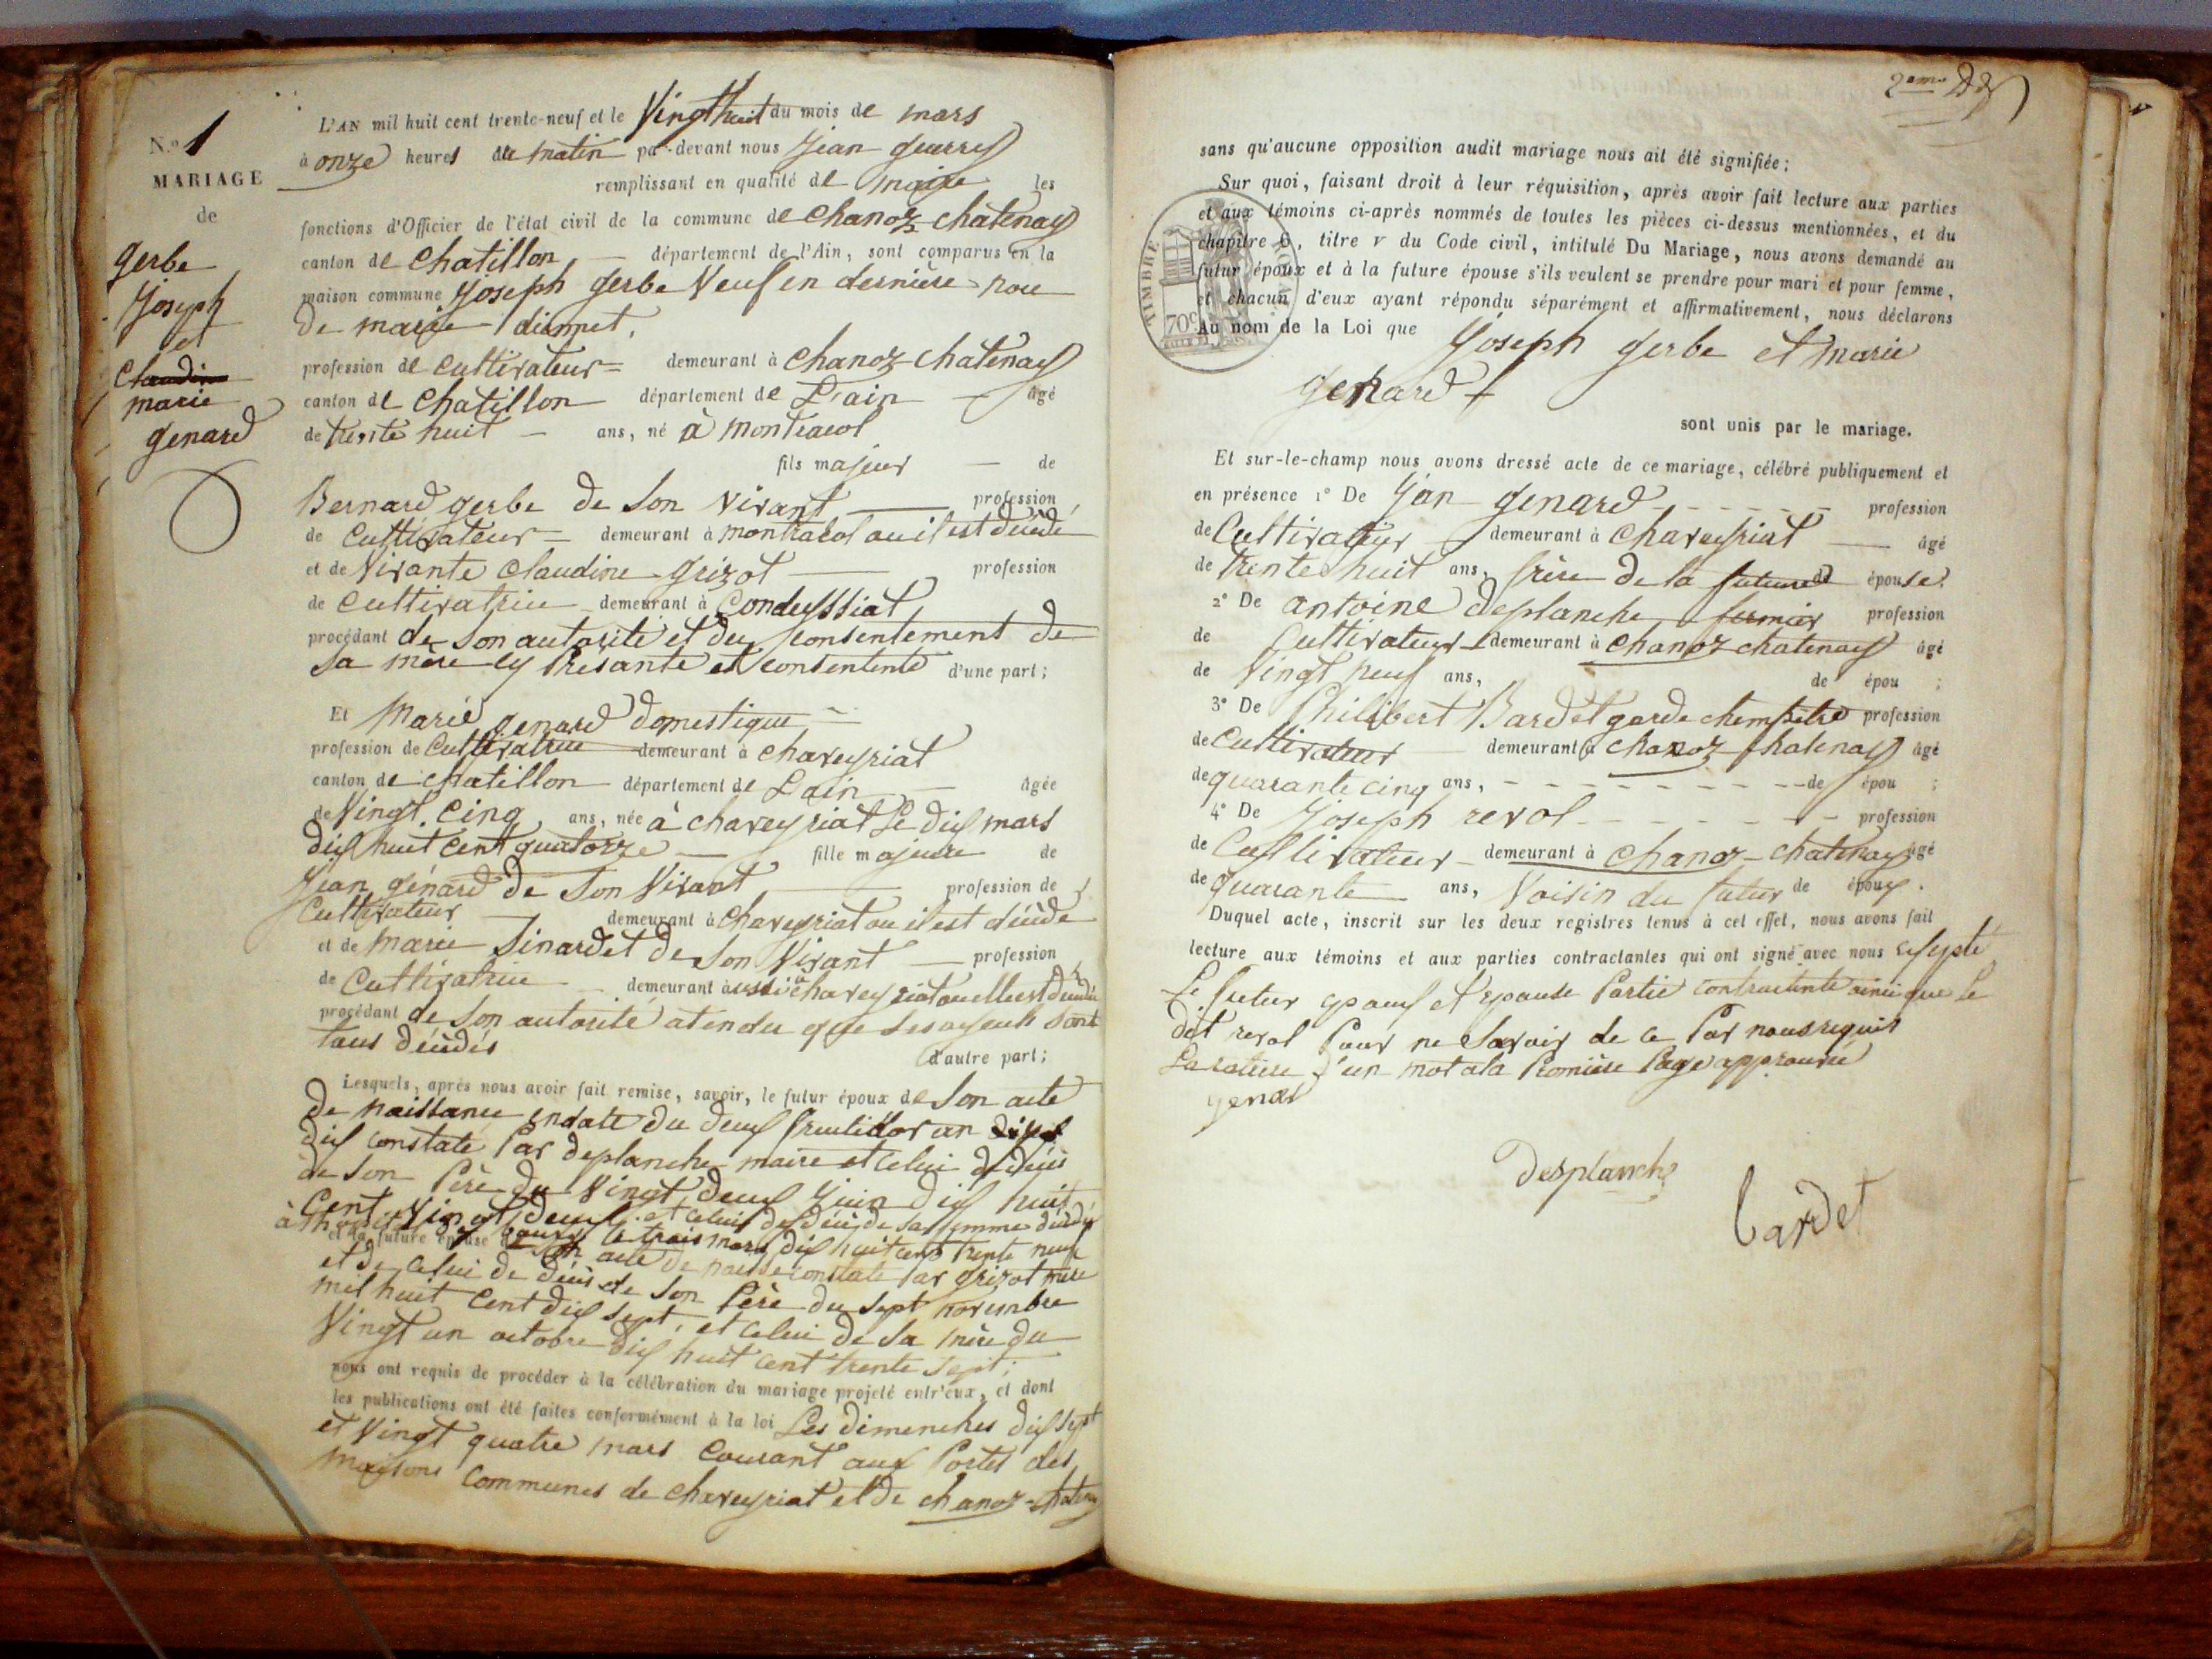 N.o 1
MARIAGE
de
gerbe
Joseph
et
Claudine
marie
genard
L'AN mil huit cent trente-neuf et le Vingt huit du mois de mars
à onze heures du matin par-devant nous Jean
remplissant en qualité de maire les
fonctions d'Officier de l'état civil de la commune de Chanoz chatenay
canton de Chatillon département de l'Ain, sont comparus en la
maison commune Joseph gerbe Veuf en dernière nou
de marie
profession de cultivateur demeurant à Chanoz chatenay
canton de Chatillon département de L'ain âgé
de trente huit ans, né à montracol
fils majeur de
Bernard gerbe de Son Vivant profession
de Cultivateur demeurant à montracol ou il est décédé
et de Vivante Claudine grizot profession
de cultivatrice demeurant à Condeyssiat
procédant de Son autorité et du consentement de
Sa mère cy Présante et consentente d'une part;
Et Marie genard domestique
profession de Cultivatrice demeurant à chaveyriat
canton de chatillon département de Lain âgée
de Vingt Cinq ans, née à chaveyriat Le dix mars
dix huit Cent quatorze fille majeure de
Jean génard de Son Vivant profession de
Cultivateur demeurant à chaveyriat ou il est décédé
et de marie Sinardet de Son Vivant profession
de Cultivatrice demeurant aussi à chaveyriat ou elle est décédée
procédant de Son autorité atendu que Ses ayeuls Sont
tous décédés d'autre part;
Lesquels, après nous avoir fait remise, savoir, le futur époux de Son acte
de naissance en date du deux fructidor an
dix constaté Par deplanche maire et celui de décès
de Son Père du Vingt deux Juin dix huit
Cent Vingt deux et celui de décès de Sa femme décédée
à le trois mars dix huit cent trente neuf
et la future épouse de Son acte de constaté Par grizot maire
et de celui de décès de Son Père du Sept novembre
mil huit Cent dix sept, et celui de Sa mère du
Vingt un octobre dix huit cent trente Sept;
nous ont requis de procéder à la célébration du mariage projeté entr'eux, et dont
les publications ont été faites conformément à la loi Les dimenches dix Sept
et Vingt quatre mars Courant aux Portes des
maisons Communes de chaveyriat et de chanoz-chatenay
2eme
sans qu'aucune opposition audit mariage nous ait été signifiée;
Sur quoi, faisant droit à leur réquisition, après avoir fait lecture aux parties
et aux témoins ci-après nommés de toutes les pièces ci-dessus mentionnées, et du
chapitre 6, titre v du Code civil, intitulé Du Mariage, nous avons demandé au
futur époux et à la future épouse s'ils veulent se prendre pour mari et pour femme,
et chacun d'eux ayant répondu séparément et affirmativement, nous déclarons
Au nom de la Loi que Joseph gerbe et marie
genard
TIMBRE ROYAL
70c
sont unis par le mariage.
Et sur-le-champ nous avons dressé acte de ce mariage, célébré publiquement et
en présence 1° De Jan genard profession
de Cultivateur demeurant à Chaveyriat âgé
de trente huit ans, frère de la future épouse
2° De antoine deplanche fermier profession
de Cultivateur demeurant à Chanoz chatenay âgé
de Vingt neuf ans, de épou ;
3° De Philibert Bardet garde chempetre profession
de Cultivateur demeurant à chanoz chatenay âgé
de quarante cinq ans, de épou ;
4° De Joseph revol profession
de Cultivateur demeurant à Chanoz-chatenay âgé
de quarante ans, Voisin du futur de époux.
Duquel acte, inscrit sur les deux registres tenus à cet effet, nous avons fait
lecture aux témoins et aux parties contractantes qui ont signé avec nous
Le futur epoux et epouse Partie contractente ainsi que le
dit revol Pour ne Savoir de ce Par nous requis
La rature d'un mot a la Promière Page approuvée
Desplanche
bardet